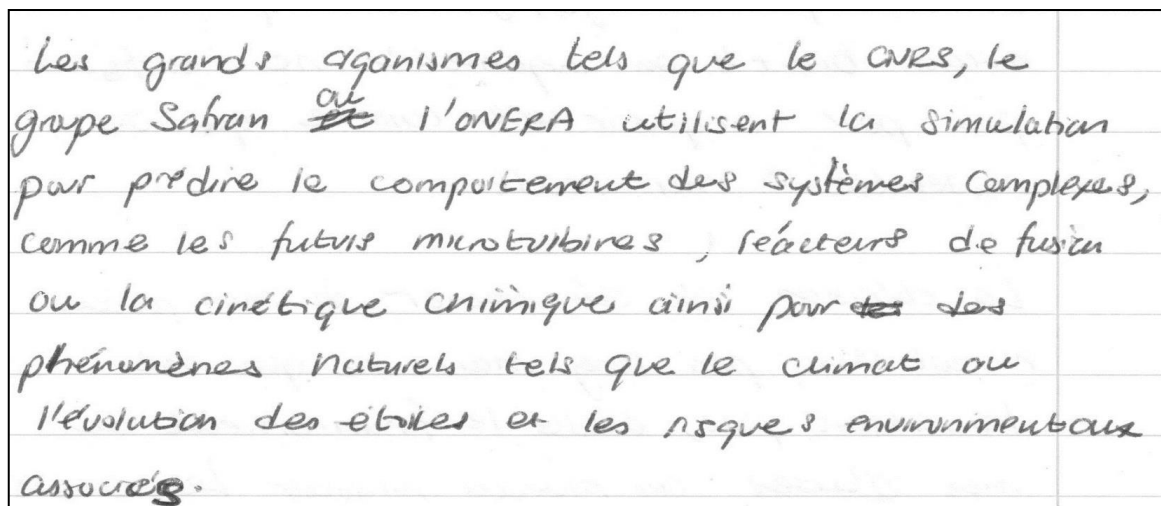 Les grands organismes tels que le CNRS, le
groupe Safran ou l'ONERA utilisent la simulation
pour prédire le comportement des systèmes complexes,
comme les futurs microturbines, réacteurs de fusion
ou la cinétique chimique ainsi pour des
phénomènes naturels tels que le climat ou
l'évolution des étoiles et les risques environnementaux
associés.